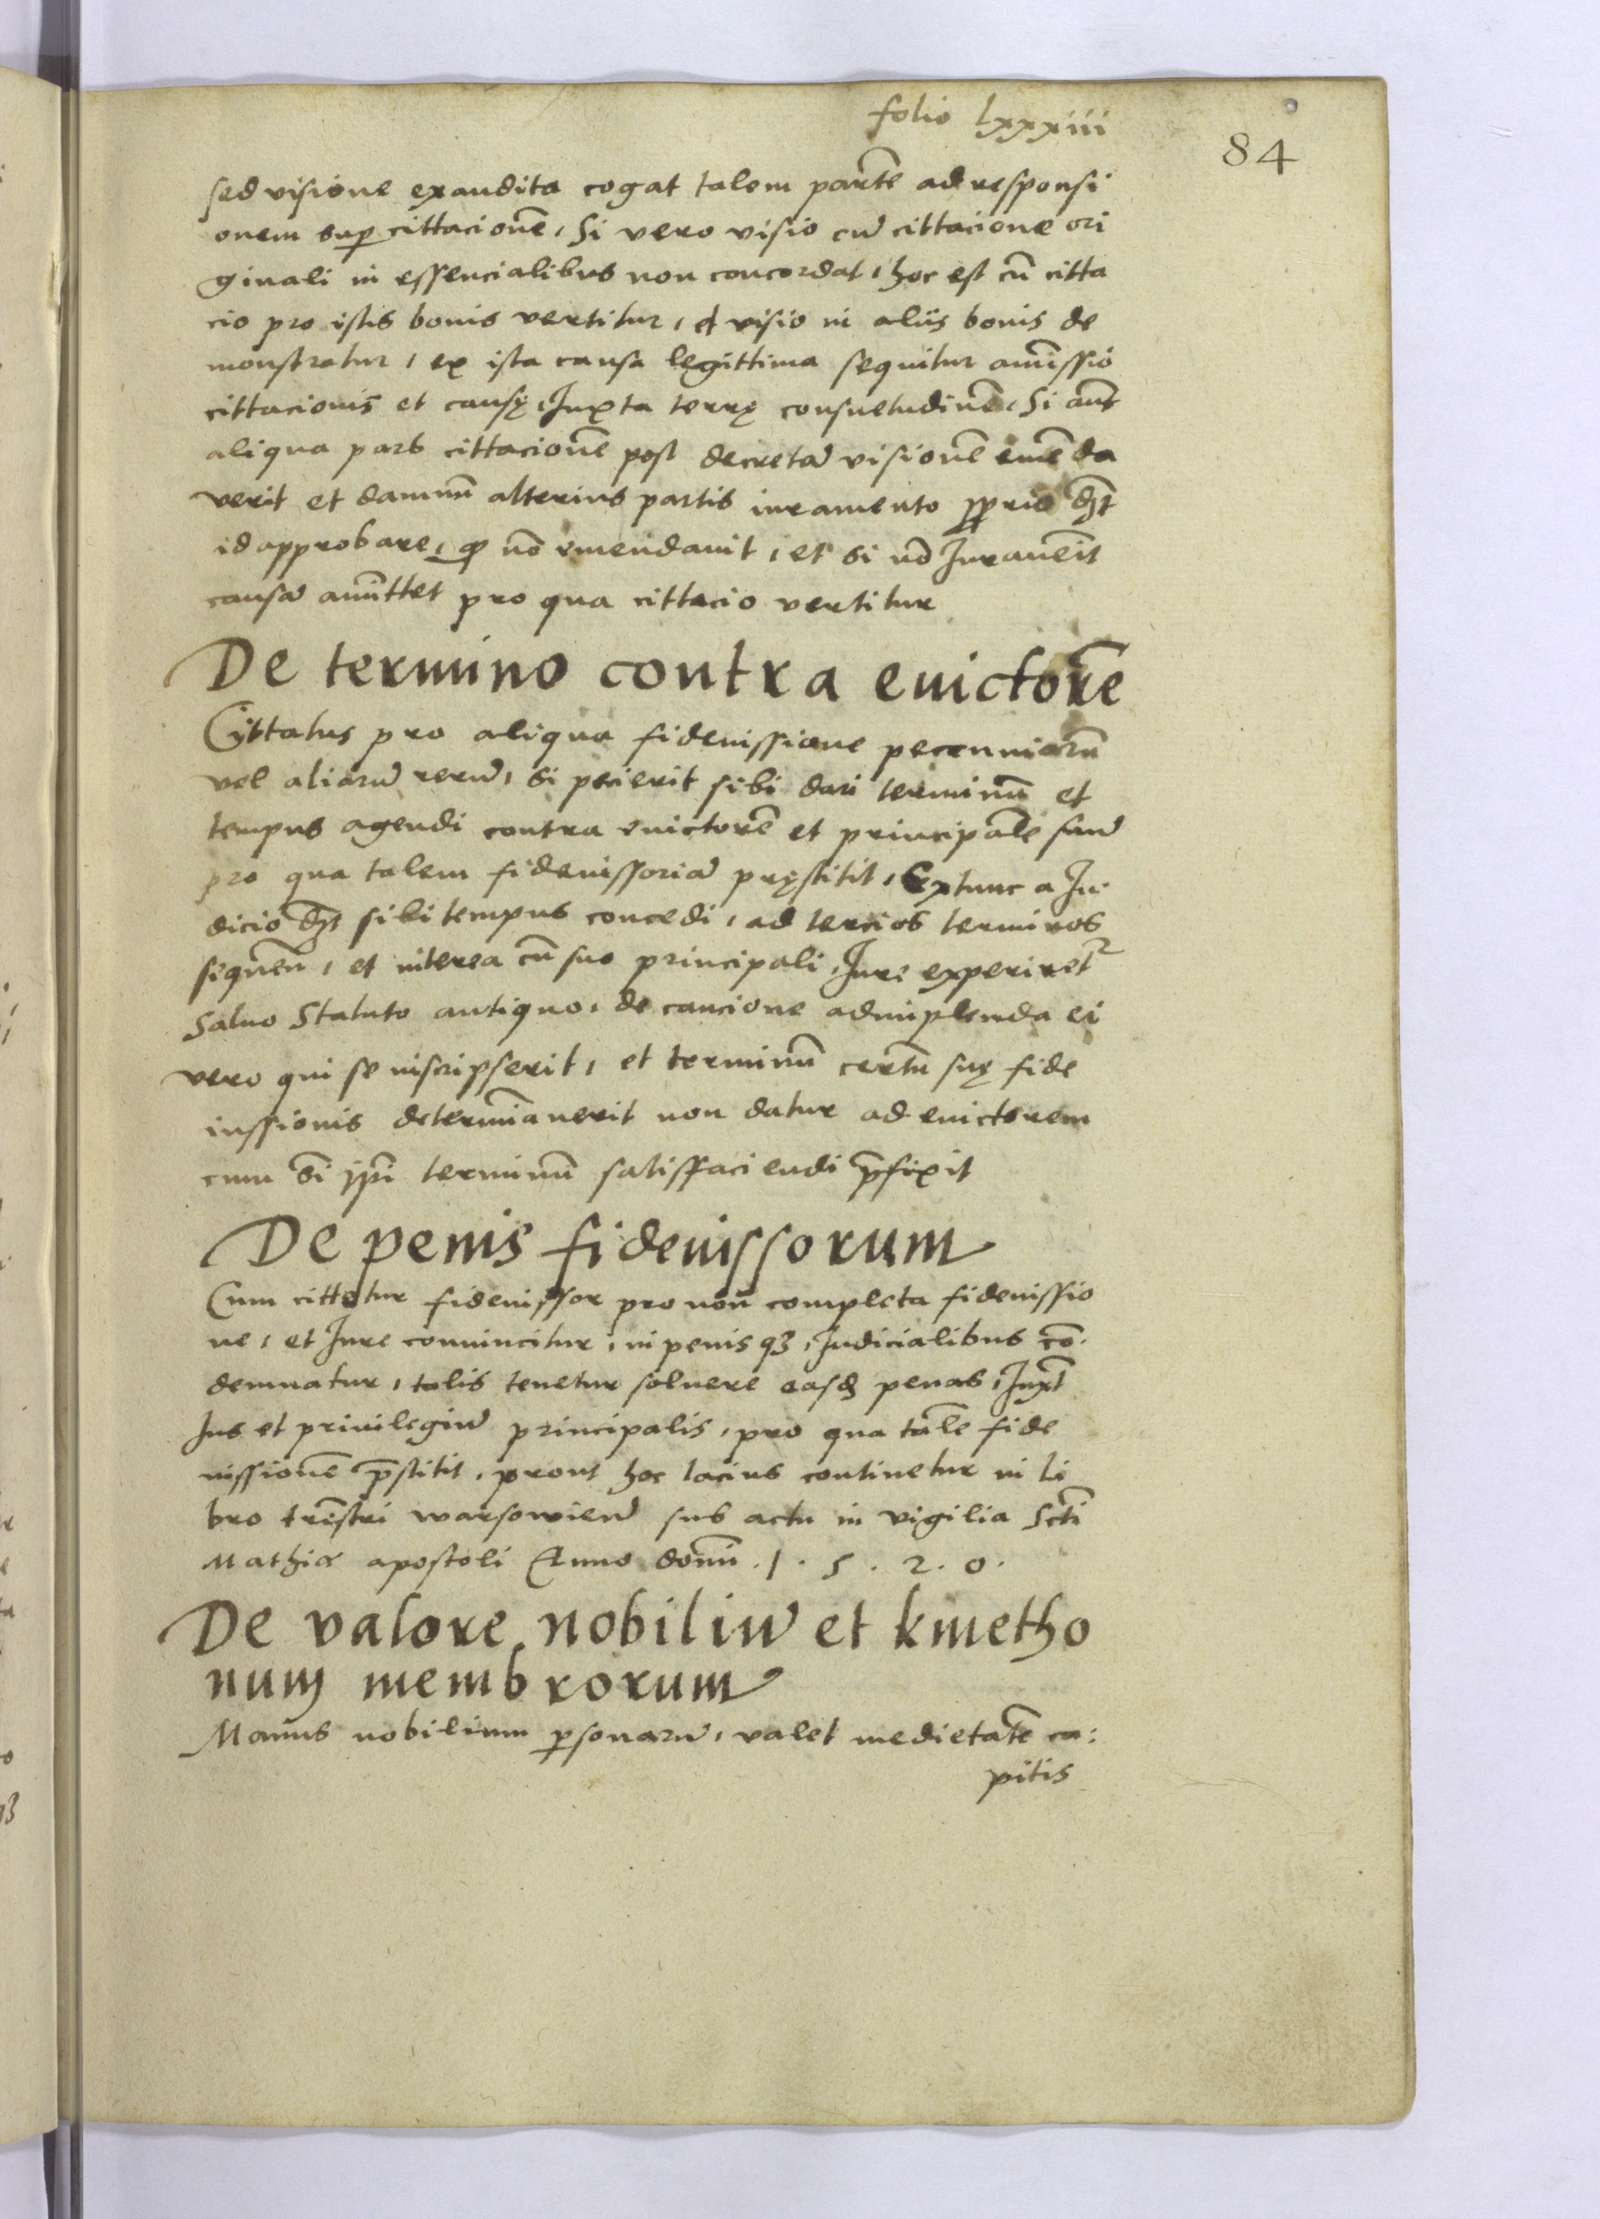 folio lxxxiiii
84
sed visione exaudita cogat talem partē ad responsi
onem sup cittacionē, Si vero visio cū cittacione ori
ginali in essencialibus non concordat, hoc est cū citta
cio pro istis bonis vertitur, et visio in aliis bonis de
monstratur, ex ista causa legittima sequitur amissio
cittacionis et causę, Juxta terrę consuetudinē, Si aūt
aliqua pars cittacionē post decretā visionē emēda
verit et damnū alterius partis iuramento proprio
id approbare, nō emendauit, et si nō Jurauerit
causā amittet pro qua cittacio vertitur
De termino contra euictorē
Cittatus pro aliqua fideiussione pecuniarū
vel aliarū rerū, si pecierit sibi dari terminū et
tempus agendi contra euictorē et principalē suū
pro qua talem fideiussoriā pręstitit, Extunc a Ju
dicio sibi tempus concedi, ad tercios terminos
sequen̄, et interea cū suo principali, Jure experiret
Saluo Statuto antiquo, de caucione adimplenda ei
vero qui se inscripserit, et terminū certū suę fide
iussionis determīauerit non datur ad euictorem
cum s̄i ip̄i terminū satisffaciendi p̄fixit
De penis fideiussorum
Cum cittatur fideiussor pro non completa fideiussio
ne, et Jure conuincitur, in penis qȝ, Judicialibus cō
demnatur, talis tenetur soluere easdē penas, Juxt̄
Jus et priuilegiū principalis, pro qua talē fide
iussionē p̄stitit, prout hoc lacius continetur in li
bro trēstri warsowien̄ sub actu in vigilia Scti
Mathiæ apostoli Anno domī . 1 . 5 . 2 . 0 .
De valore nobiliū et kmetho
num membrorum
Manus nobilium personarū, valet medietatē ca:
pitis